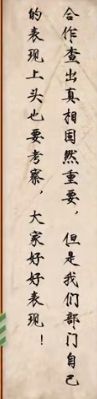 合作查出真相固然重要，但是我们部门自己
的表现上头也要考察，大家好好表现！